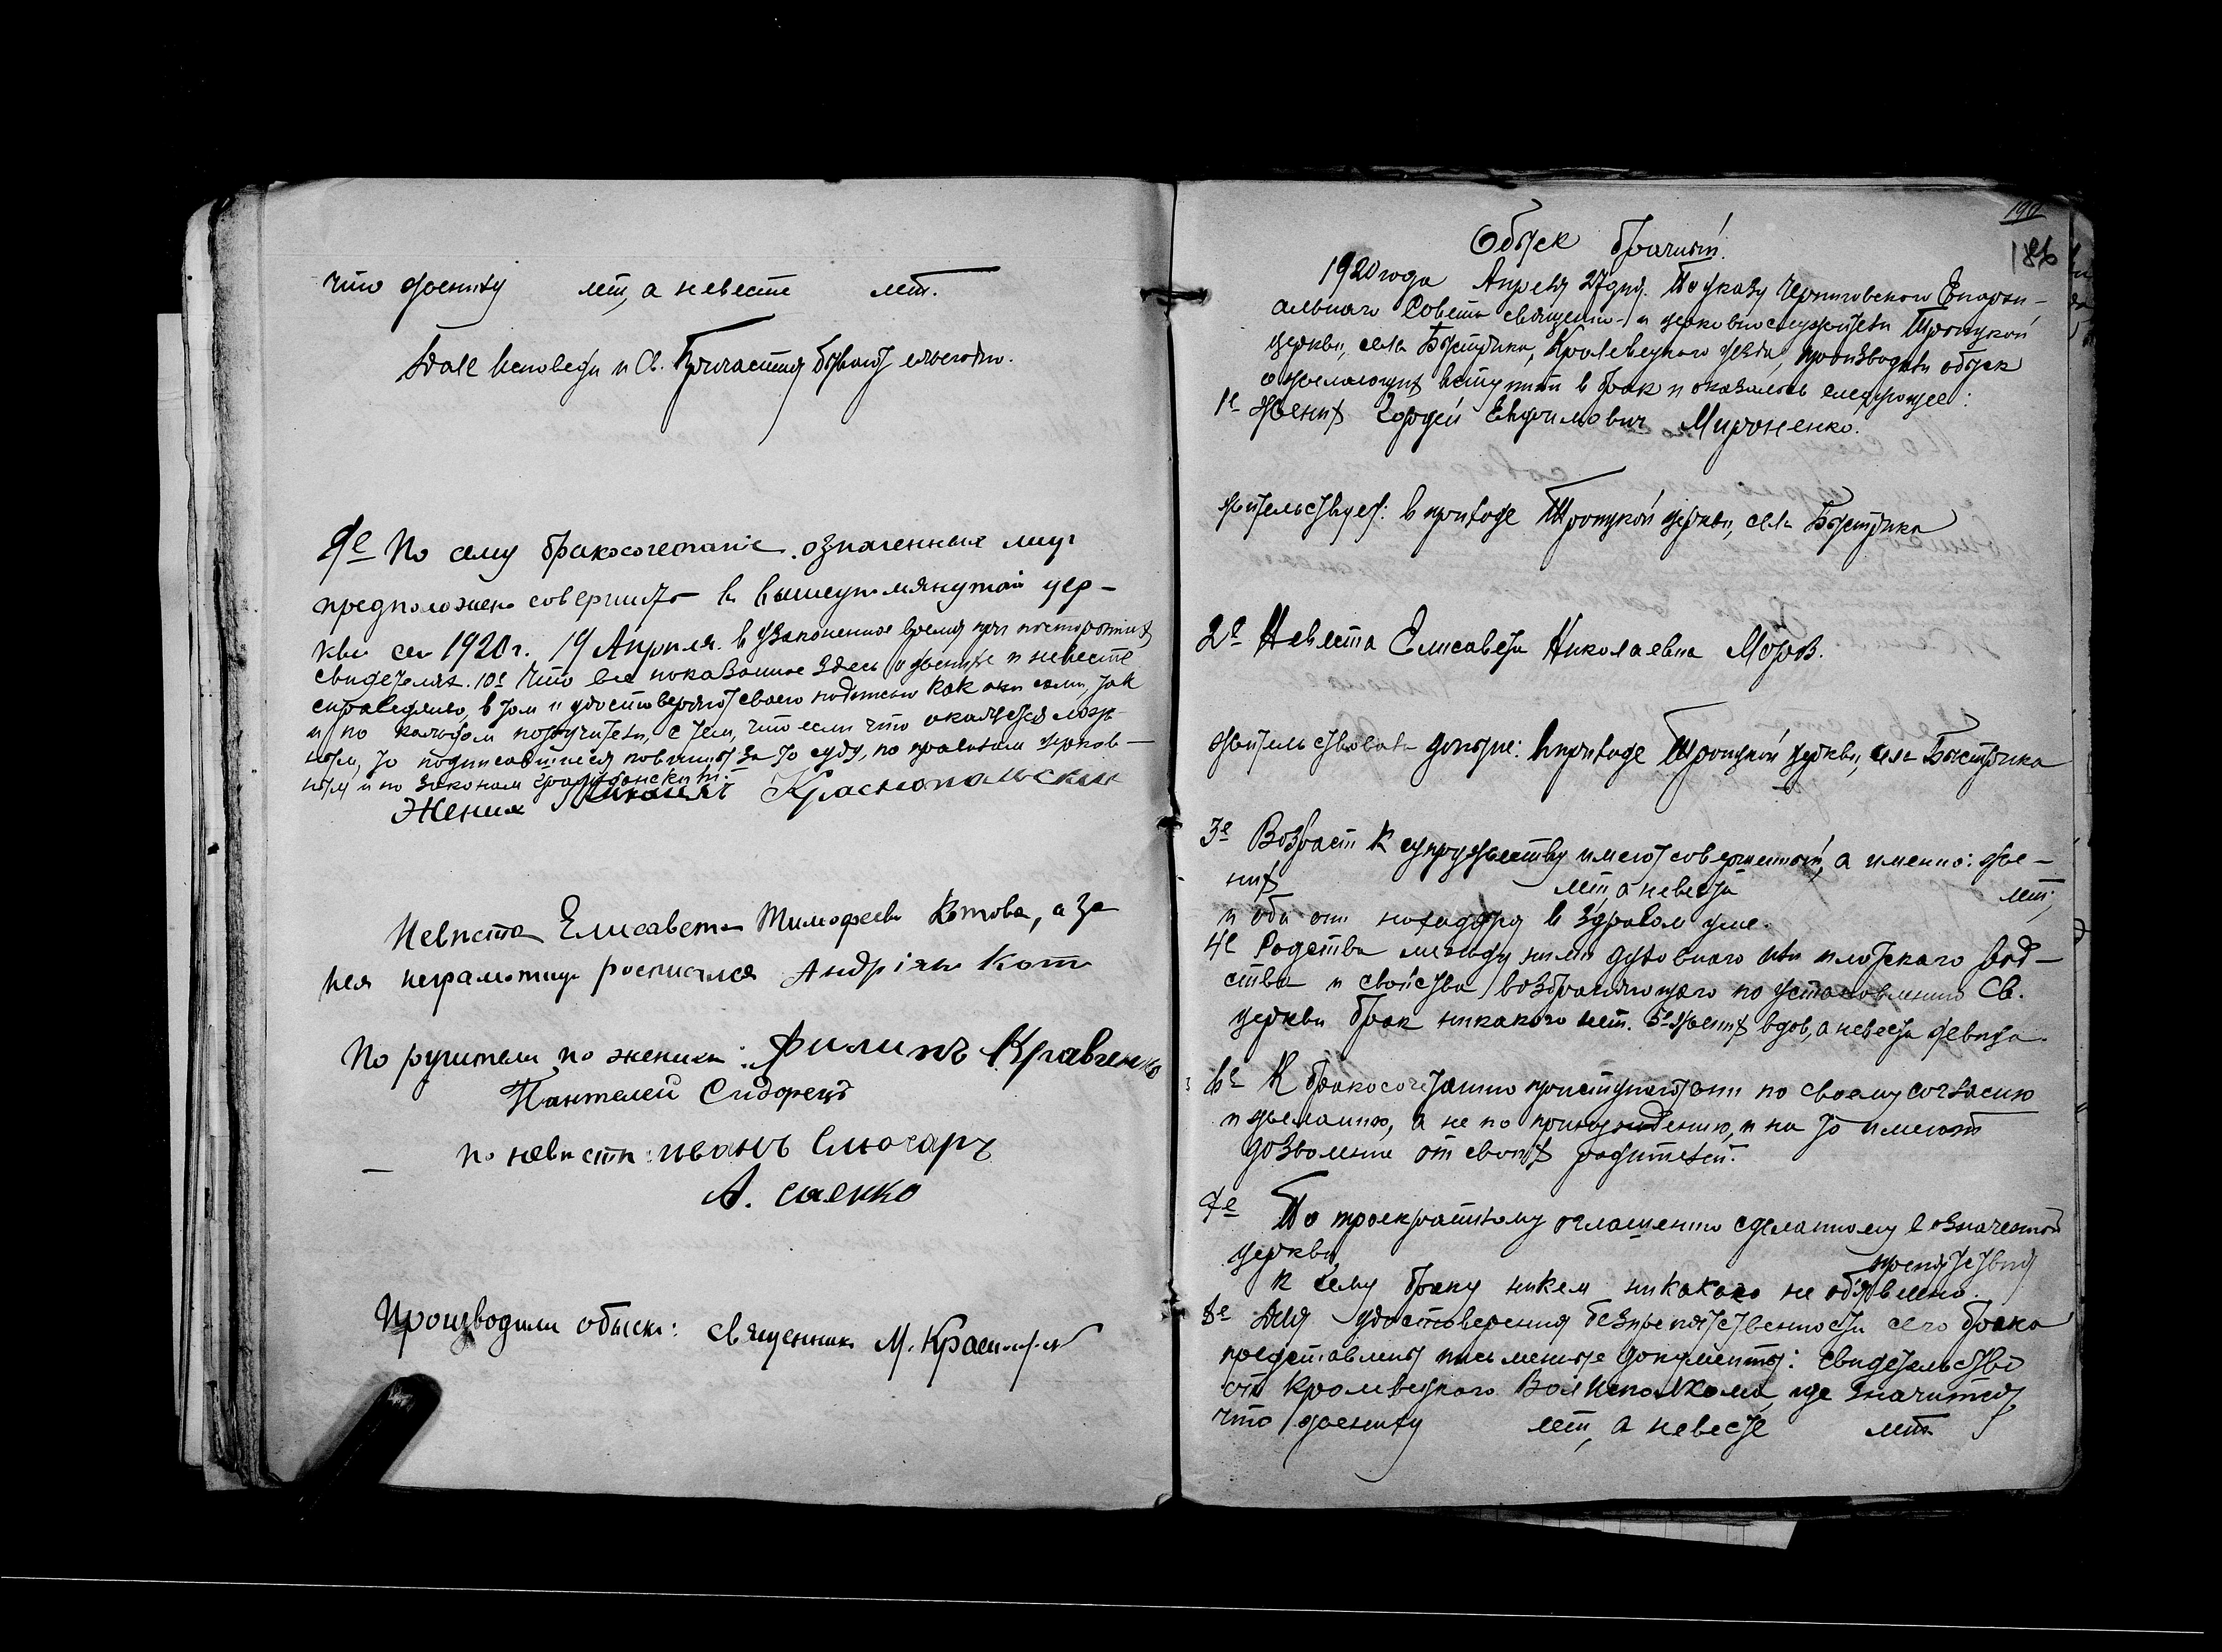 что жениху лет, а невесте лет.
были Исповеди и Св. Причастия бывают ежегодно.
9е По сему бракосочетание означенных лиц
предположено совершить в вышеупомянутой цер-
кви сего 1920 г. 19 Апреля. в узаконенное время при посторонних
свидетелях. 10е Что все показанное здесь о женихе и невесте
справедливо, в том и удостоверяют своею подписью как они сами, так
и по каждом поручители, с тем, что если что окажется лож-
ным, то подписавшиеся повинны за то суду, по правилам церков-
ным и по законам гражданским.
Жених Краснопольский
Невеста Елисавета Тимофеева Котова, а за
нея неграмотную росписался Андріян Кот
По ручители по женихи: Филипъ Кравченко
Пантелей Сидорецъ
по невести: иванъ Слюсарь
А. саенко
Производили обыск: священник М. Красноп
190
186
Обыск брачный.
1920 года Апреля 27 дня. По указу Черниговского Епархи-
ального Совета священно- и церковнослужители Троицкой
церкви, села Быстрика, Кролевецкого уезда, производили обыск
о желающих вступить в брак и оказалось следующее:
1е Жених Гордей Евфимович Мироненко.
жительствует: в приходе Троицкой церкви, села Быстрика
2е Невеста Елисавета Николаевна Мороз.
жительствовала доныне: в приходе Троицкой церкви, села Быстрика
3е Возраст к супружеству имеют совершенный, а именно: же-
них лет, а невеста лет,
и оба они находятся в здравом уме.
4е Родства между ними духовного или плотского род-
ства и свойства, возбраняющаго по установлению Св.
церкви брак никакого нет. 5е Жених вдов, а невеста девица.
6е К бракосочетанию приступают они по своему согласию
и желанию, а не по принуждению, и на то имеют
дозволение от своих родителей.
7е По троекратному оглашению сделанному в означенной
церкви, препятствия
к сему браку никем никакого не объявлено.
8е Для удостоверения безпрепятственности сего брака
представлены письменные документы: свидетельство
от Кролевецкого Волисполкома, где значится,
что жениху лет, а невесте лет